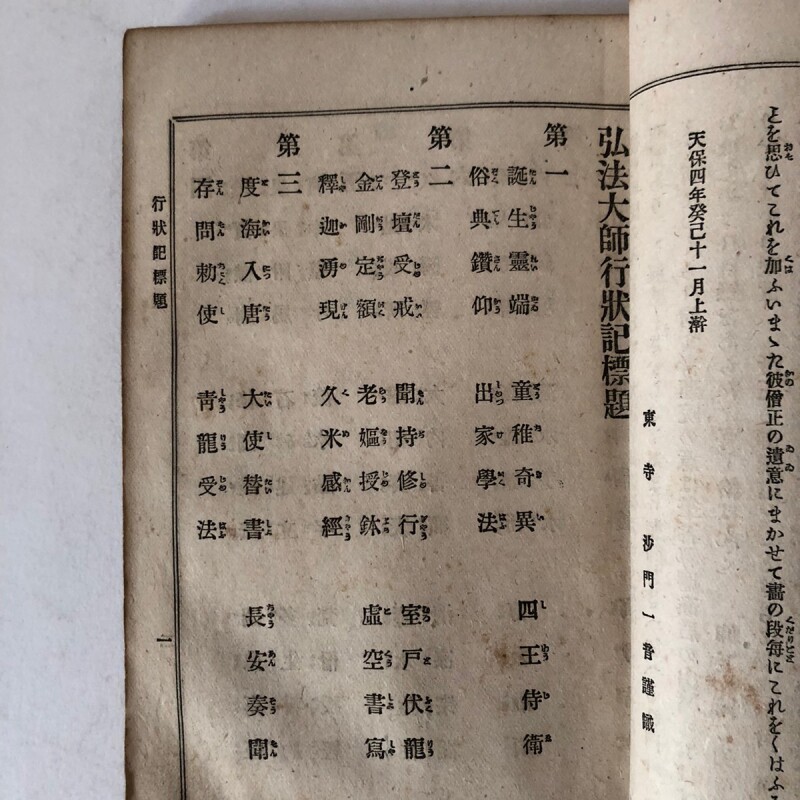 とを思ひてこれを加ふいまゝた彼僧正の遺意にまかせて畵の段毎にこれをくはふ
天保四年癸巳十一月上澣
東寺 沙門一咨謹識
弘法大師行狀記標題
第一
誕生靈端 童稚奇異 四王侍衛
俗典鑽仰 出家學法
第二
登壇受戒 聞持修行 室戸伏龍
金剛定額 老嫗授鉢 虛空書寫
釋迦湧現 久米感經
第三
度海入唐 大使替書 長安奏聞
存問勅使 靑龍受法
行狀記標題
一